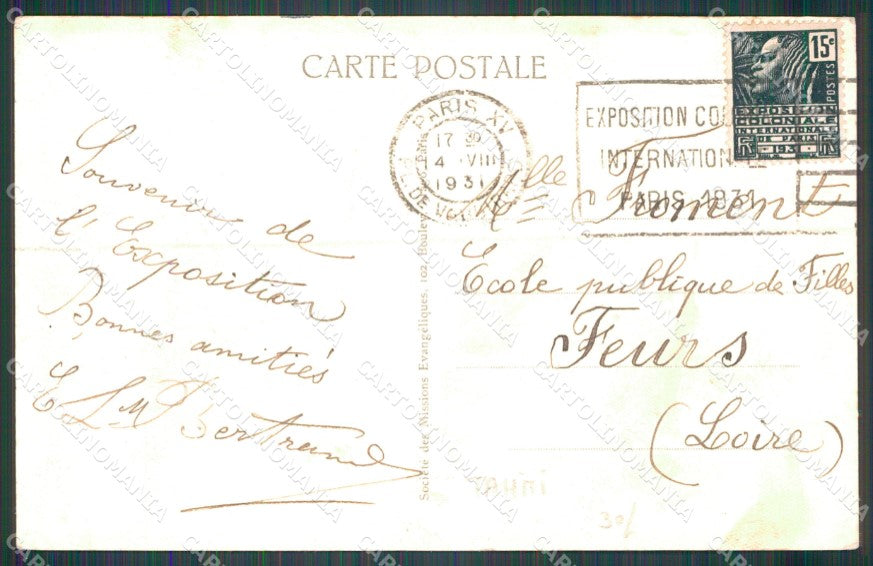 CARTE POSTALE
PARIS XV
17 30
4 VIII
1931
EXPOSITION CO
INTERNATION
PARIS 1931
15c
POSTES
EXPOSITION
COLONIALE
INTERNATIONALE
DE PARIS
1931
Souvenir de
l'Exposition
Bonnes amitiés
Bertrand
Mlle Froment
Ecole publique de Filles
Feurs
(Loire)
Société des Missions Evangéliques, 102, Boulev
30/
CARTOLINOMANIA